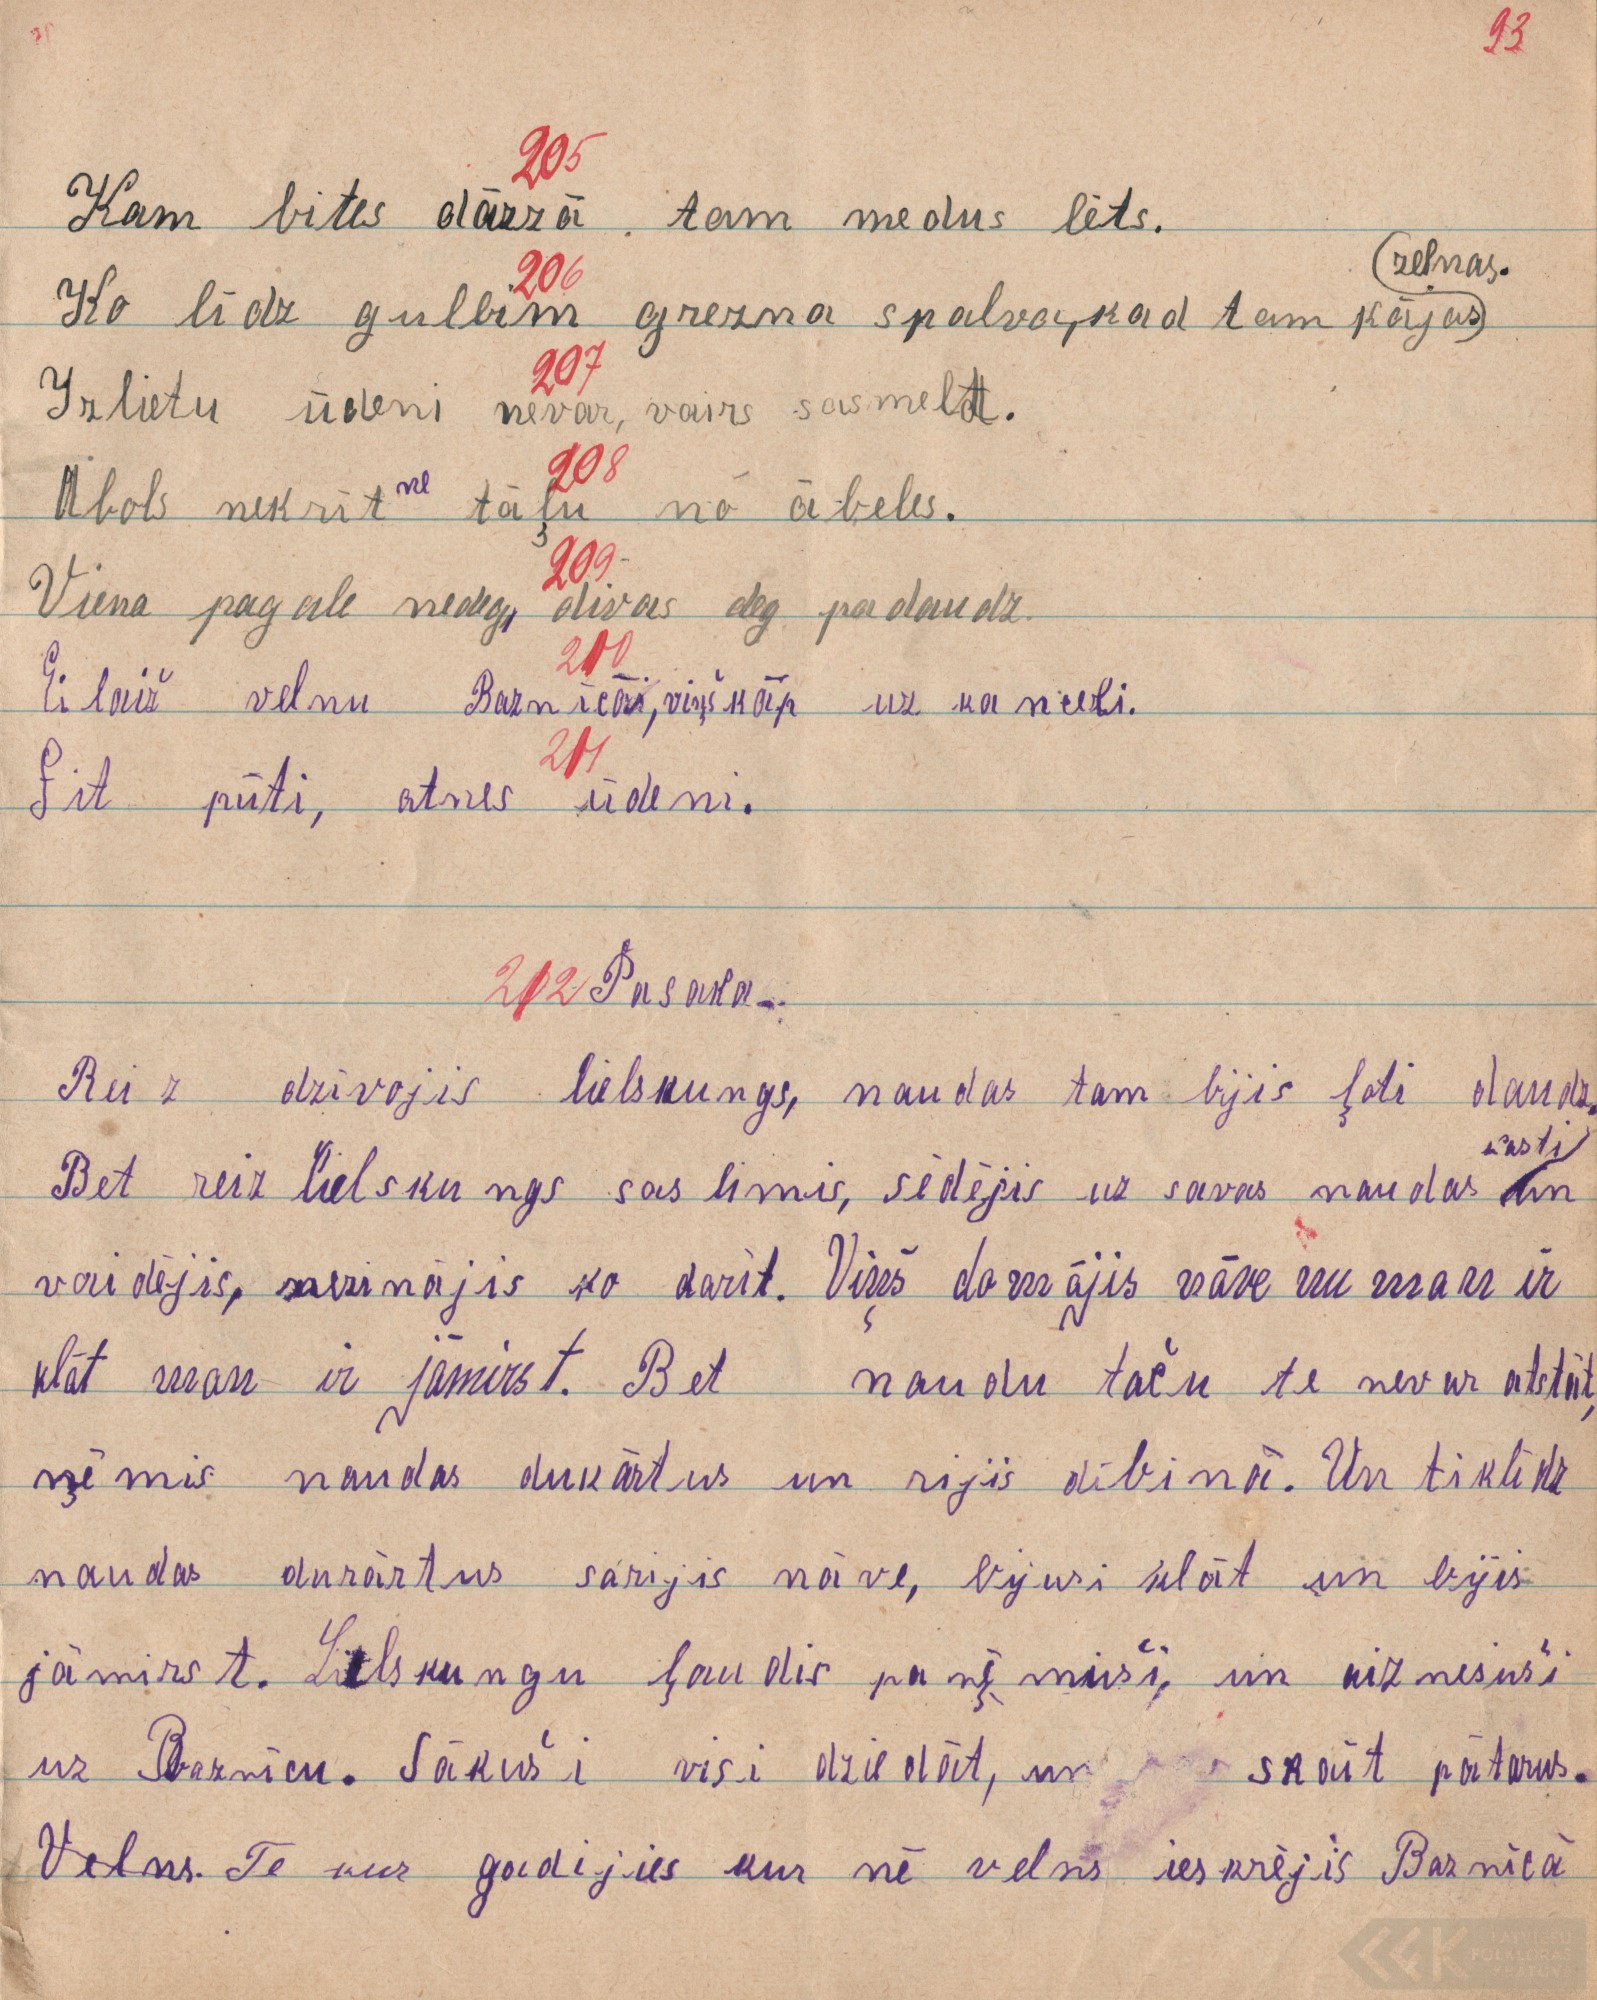 93
205
Kam bites dārzā tam medus lēts.
206
(zelnas.
Ko līdz gulbim grezna spalva, kad tam kājas)
207
Izlietu ūdeni nevar, vairs sasmelt.
208
Ābols nekrīt ne tāļu nō ābeles.
209
Viena pagale nedeg, divas deg padaudz.
210
Ei laiž velnu Baznīcāi, viņš kāp uz kanceli.
211
Sit pūti, atnes ūdeni.
212 Pasaka.
Reiz dzīvojis lielskungs, naudas tam bijis ļoti daudz.
Bet reiz lielskungs saslimis, sēdējis uz savas naudas lasti un
vaidējis, nezinājis ko darīt. Viņš domājis nāve nu man ir
klāt man ir jāmirst. Bet naudu taču te nevar atstāt,
ņēmis naudas dukārtus un rijis dibinā. Un tiklīdz
naudas dukārtus sarijis nāve, bijusi klāt un bijis
jāmirst. Lielskungu ļaudis paņēmuši, un aiznesuši
uz Baznīcu. Sākuši visi dziedāt, un skāit pātarus.
Velns. Te kur gadijies kur nē velns ieskrējis Baznīcā